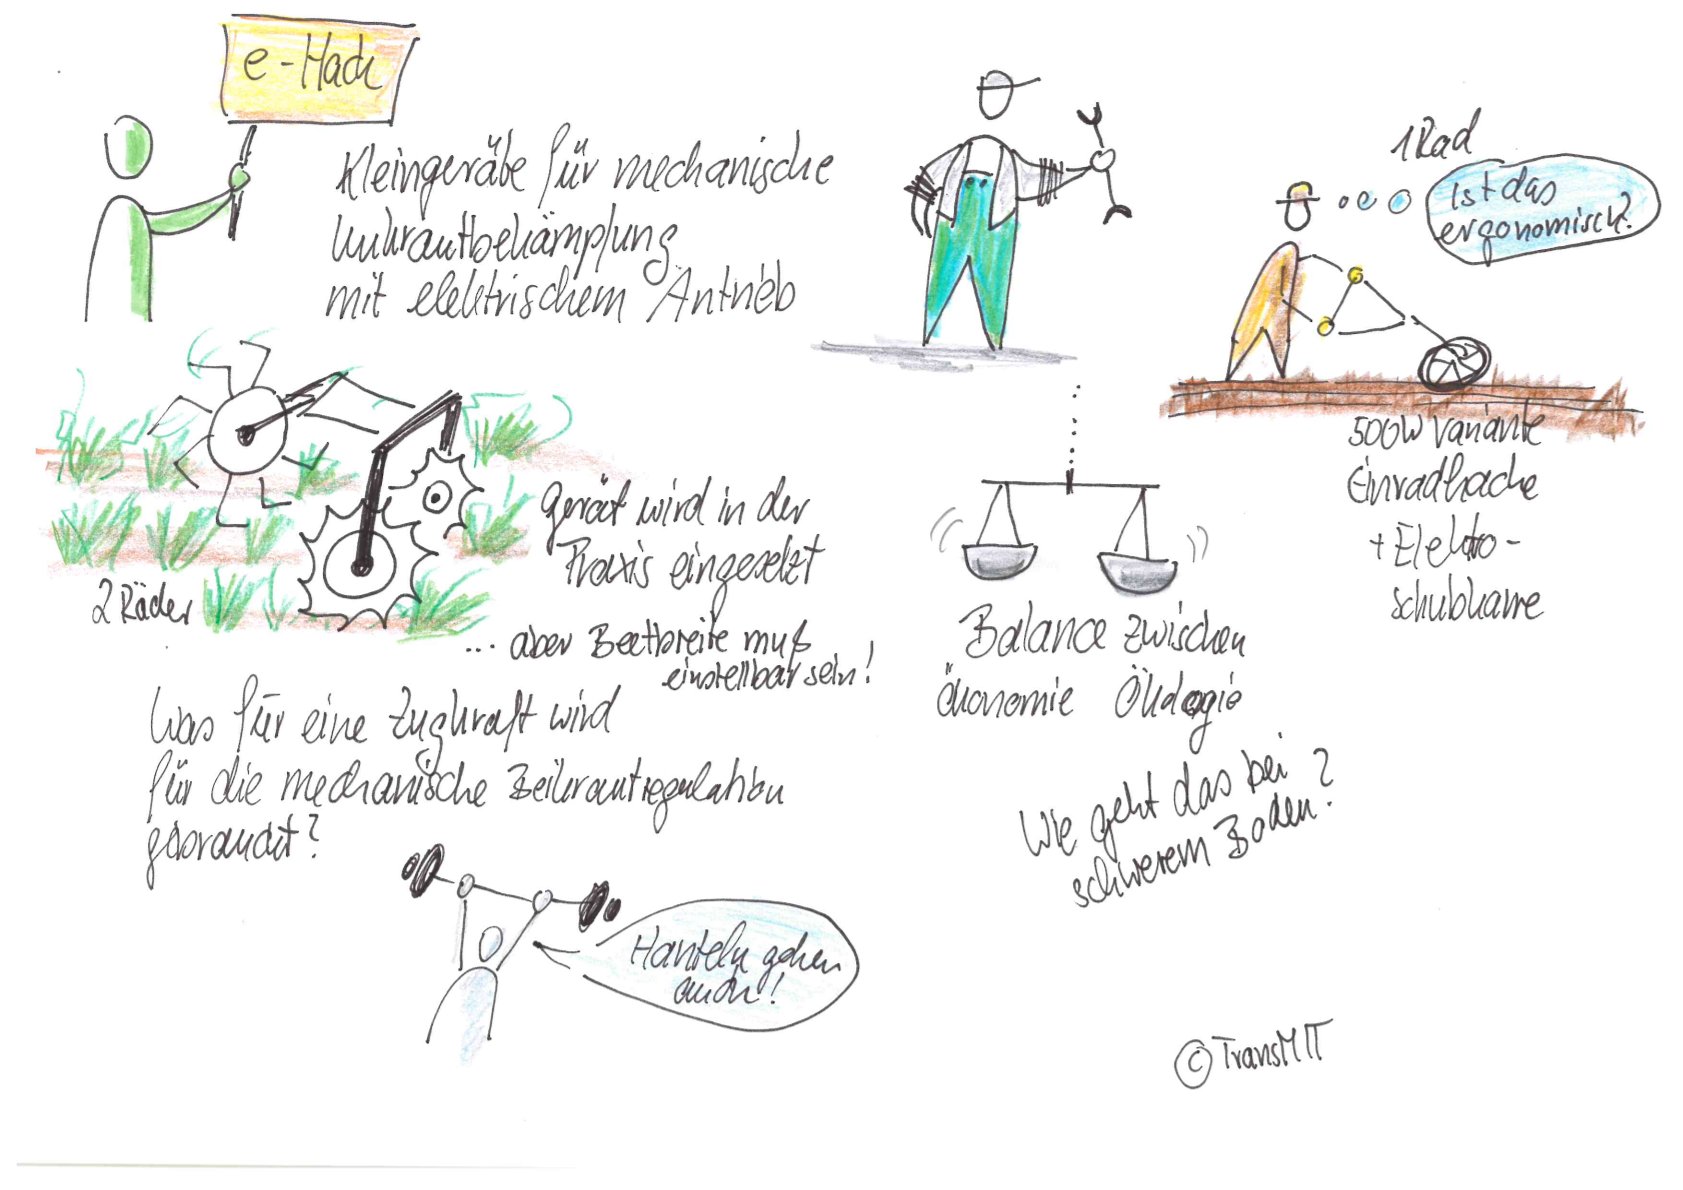 e-Hack
Kleingeräte für mechanische
Unkrautbekämpfung
mit elektrischem Antrieb
1 Rad
Ist das
ergonomisch?
500W Variante
Einradhacke
+ Elektro-
schubkarre
2 Räder
Gerät wird in der
Praxis eingesetzt
... aber Beetbreite muß
einstellbar sein!
Balance zwischen
Ökonomie Ökologie
Was für eine Zugkraft wird
für die mechanische Beikrautregulation
gebraucht?
Wie geht das bei
schwerem Boden?
Hanteln gehen
auch!
© TransMIT